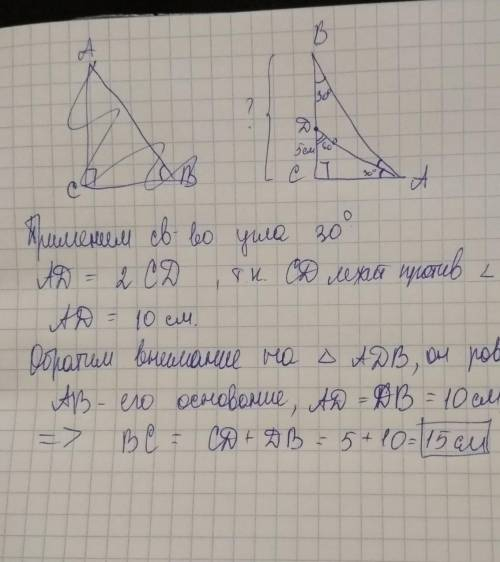 A
C
B
B
?
30°
D
5см
60°
C
30°
A
Применим св-во угла 30°
AD = 2 CD , т.к. CD лежит против ∠
AD = 10 см.
Обратим внимание на △ ADB, он рав
AB - его основание, AD = DB = 10см
=> BC = CD + DB = 5 + 10 = 15 см